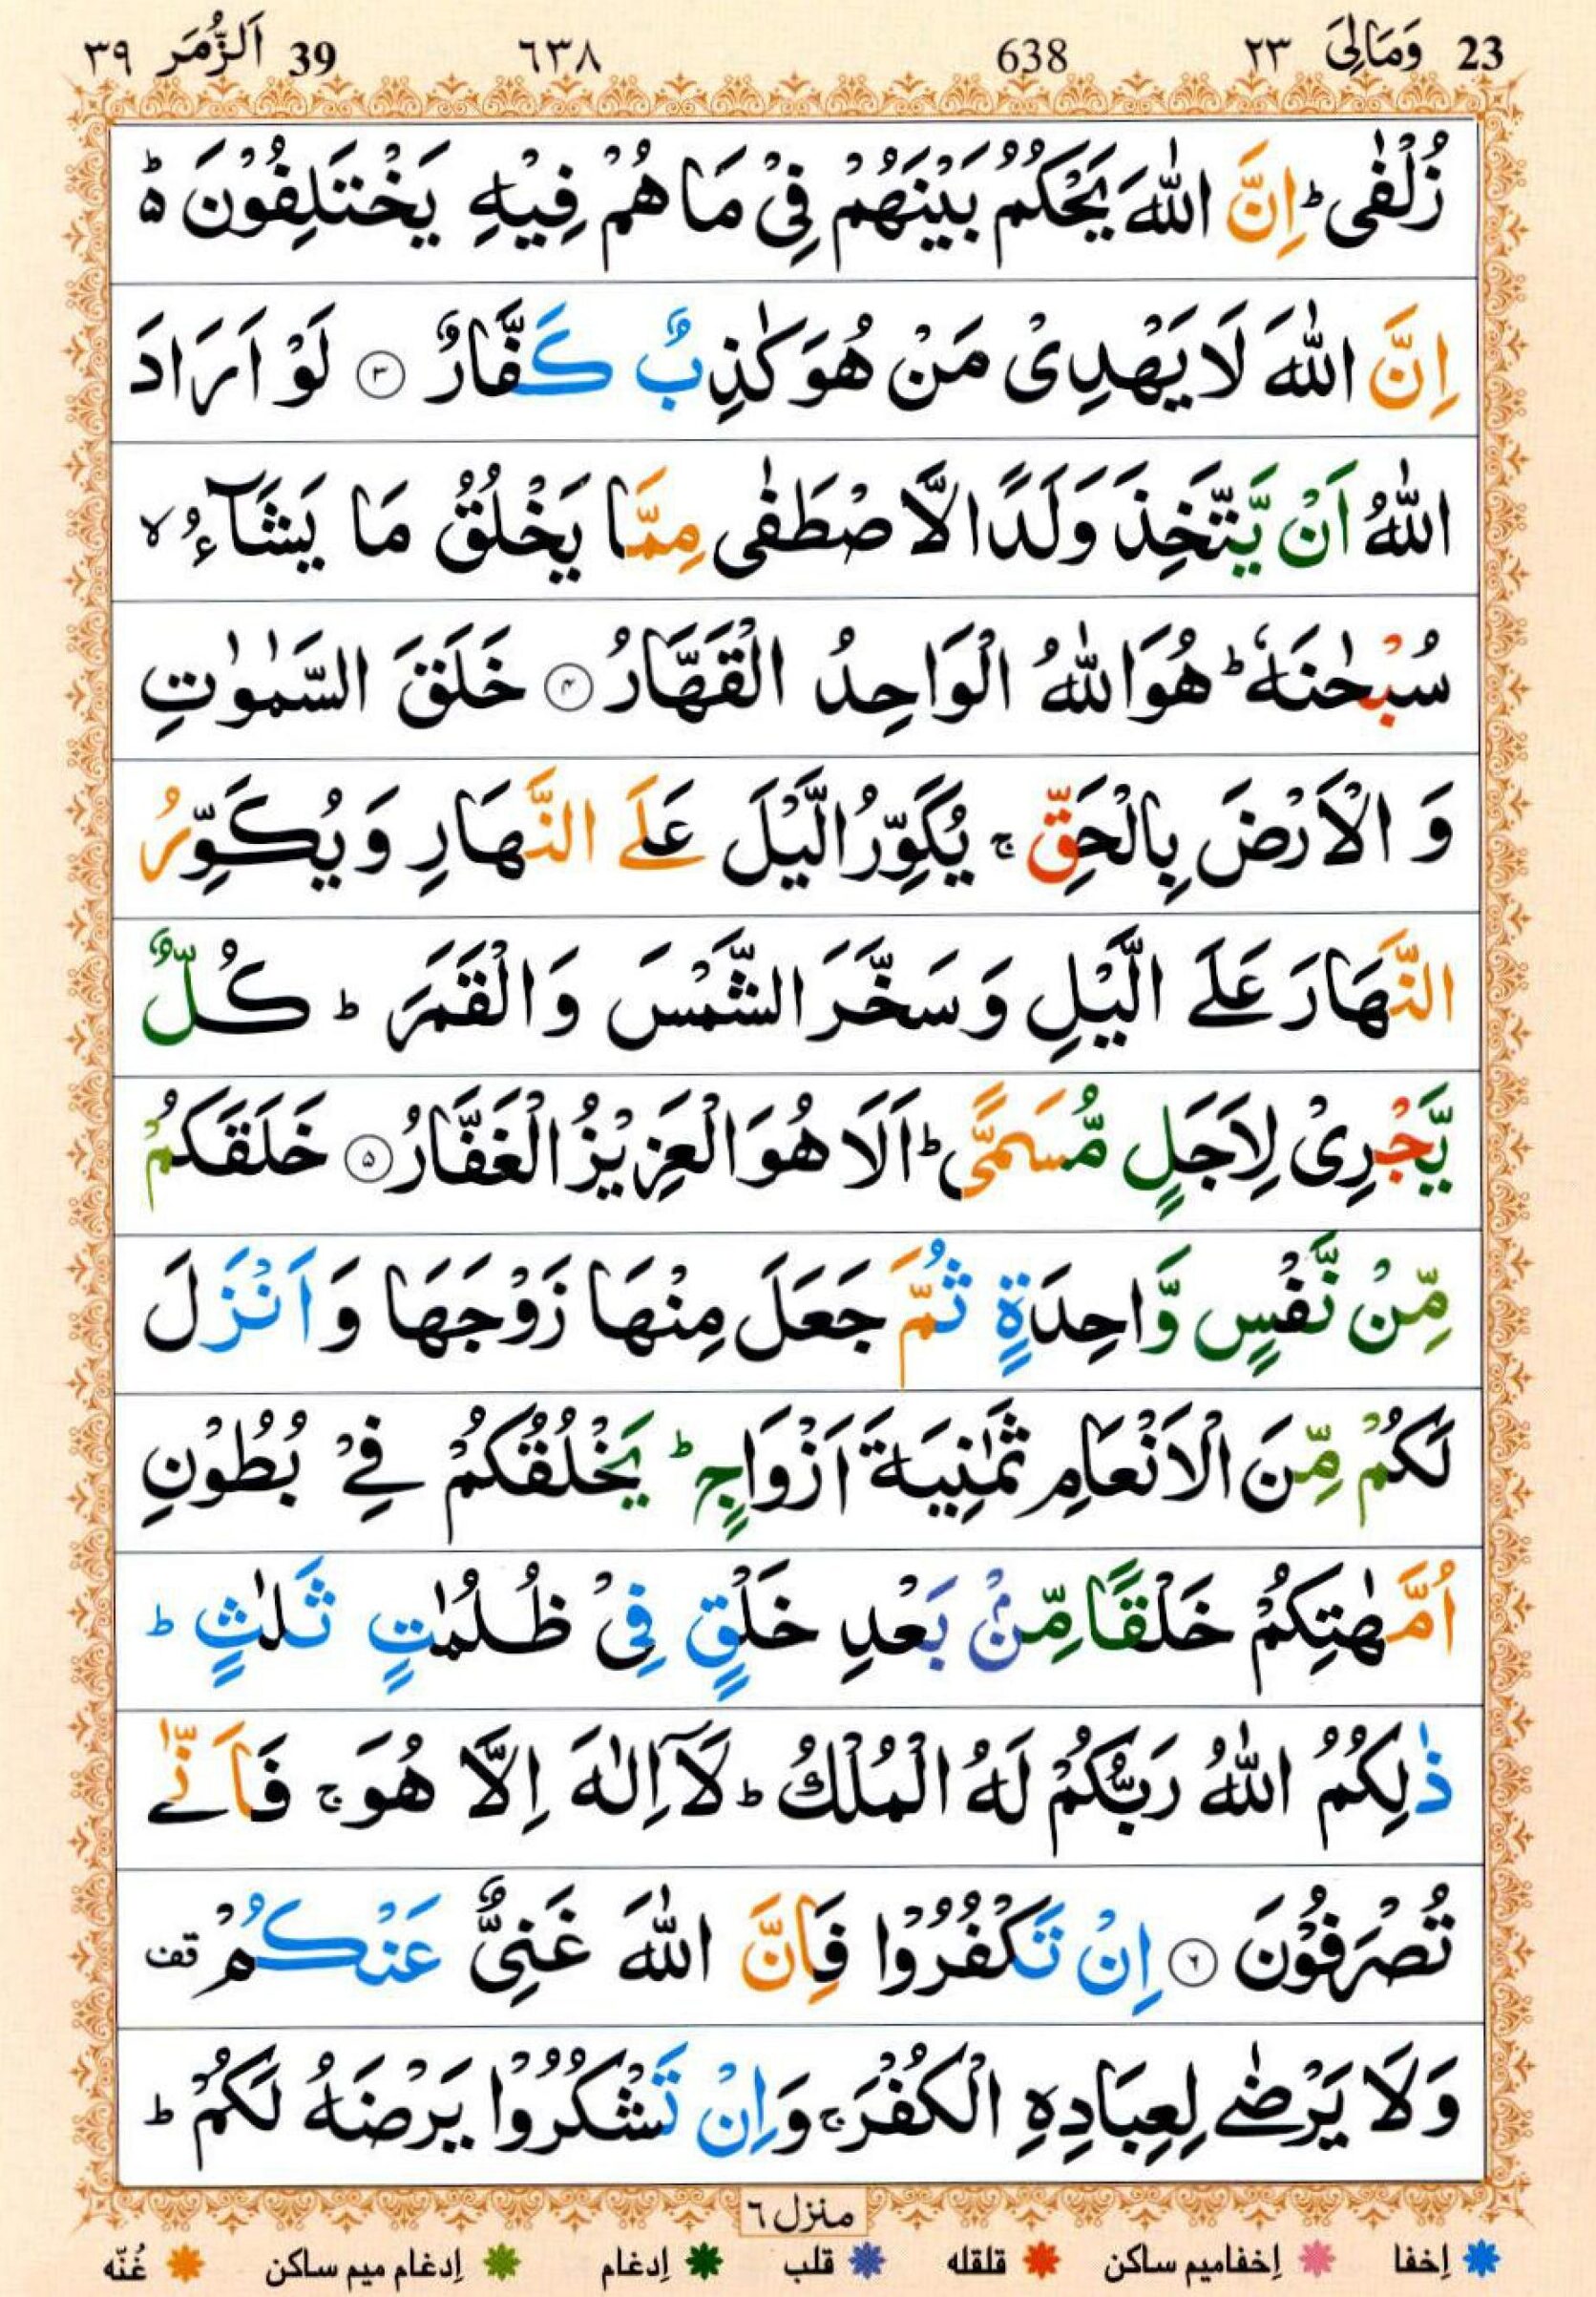 23 وَمَالِیَ ٢٣ 638 ٦٣٨ 39 اَلزُّمَر ٣٩
زُلْفٰی ؕ اِنَّ اللّٰهَ یَحْكُمُ بَیْنَهُمْ فِیْ مَا هُمْ فِیْهِ یَخْتَلِفُوْنَ ۬ؕ
اِنَّ اللّٰهَ لَا یَهْدِیْ مَنْ هُوَ كٰذِبٌ كَفَّارٌ ﴿٣﴾ لَوْ اَرَادَ
اللّٰهُ اَنْ یَّتَّخِذَ وَلَدًا لَّاصْطَفٰی مِمَّا یَخْلُقُ مَا یَشَآءُ ۙ
سُبْحٰنَهٗ ؕ هُوَ اللّٰهُ الْوَاحِدُ الْقَهَّارُ ﴿۴﴾ خَلَقَ السَّمٰوٰتِ
وَ الْاَرْضَ بِالْحَقِّ ۚ یُكَوِّرُ الَّیْلَ عَلَی النَّهَارِ وَ یُكَوِّرُ
النَّهَارَ عَلَی الَّیْلِ وَ سَخَّرَ الشَّمْسَ وَ الْقَمَرَ ؕ كُلٌّ
یَّجْرِیْ لِاَجَلٍ مُّسَمًّی ؕ اَلَا هُوَ الْعَزِیْزُ الْغَفَّارُ ﴿۵﴾ خَلَقَكُمْ
مِّنْ نَّفْسٍ وَّاحِدَةٍ ثُمَّ جَعَلَ مِنْهَا زَوْجَهَا وَ اَنْزَلَ
لَكُمْ مِّنَ الْاَنْعَامِ ثَمٰنِیَةَ اَزْوَاجٍ ؕ یَخْلُقُكُمْ فِیْ بُطُوْنِ
اُمَّهٰتِكُمْ خَلْقًا مِّنْۢ بَعْدِ خَلْقٍ فِیْ ظُلُمٰتٍ ثَلٰثٍ ؕ
ذٰلِكُمُ اللّٰهُ رَبُّكُمْ لَهُ الْمُلْكُ ؕ لَاۤ اِلٰهَ اِلَّا هُوَ ۚ فَاَنّٰی
تُصْرَفُوْنَ ﴿٦﴾ اِنْ تَكْفُرُوْا فَاِنَّ اللّٰهَ غَنِیٌّ عَنْكُمْ قف
وَلَا یَرْضٰی لِعِبَادِهِ الْكُفْرَ ۚ وَ اِنْ تَشْكُرُوْا یَرْضَهُ لَكُمْ ؕ
منزل ٦
اِخفا اِخفامیم ساکن قلقله قلب اِدغام اِدغام میم ساکن غُنّه